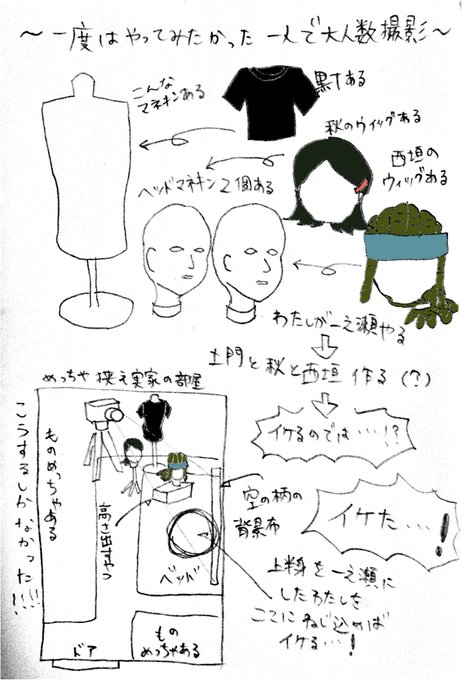 ～一度はやってみたかった 一人で大人数撮影～
こんな
マネキンある
黒Tある
秋のウィッグある
西垣の
ウィッグある
ヘッドマネキン2個ある
わたしが一之瀬やる
土門と秋と西垣 作る(?)
イケるのでは…!?
イケた…!
めっちゃ狭え実家の部屋
こうするしかなかった!!!!
ものめっちゃある
高さ出すやつ
空の柄の
背景布
ベッド
上半身を一之瀬に
したわたしを
ここにねじ込めば
イケる…!
ドア
もの
めっちゃある